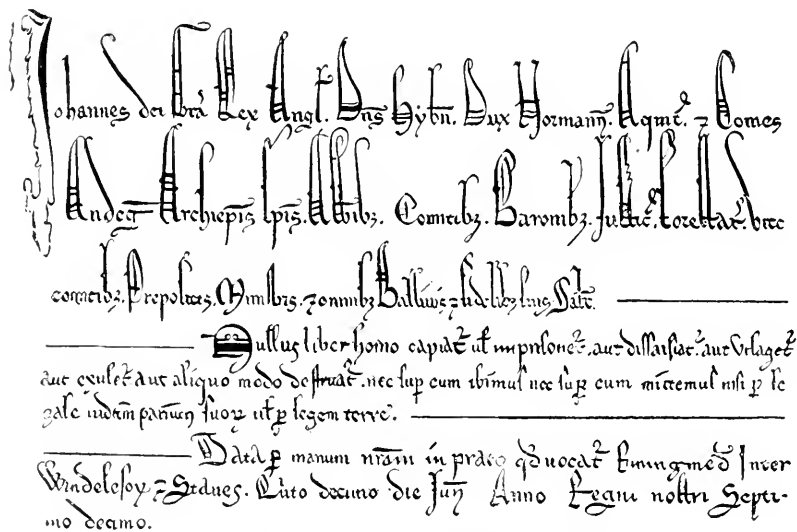 Johannes dei gra Rex Angl. Dns Hybn. Dux Normann. Aquit. ⁊ Comes
Andeg Archiepis Epis. Abbibz. Comitibz. Baronibz. Justic. Forestar. vice
comitibz. Prepositis. Ministris. ⁊ omnibz Ballivis ⁊ fidelibz suis Salt.
Nullus liber homo capiat ul imprisonet. aut dissaisiat. aut utlaget
aut exulet aut aliquo modo destruat. nec sup eum ibimus nec sup eum mittemus nisi p le
gale judicm parium suoꝝ ul p legem terre.
Data p manum nram in prato qd vocat Runingmed Inter
Windelesoꝝ ⁊ Stanes. Quto decimo die Jun Anno Regni nostri Septi-
mo decimo.